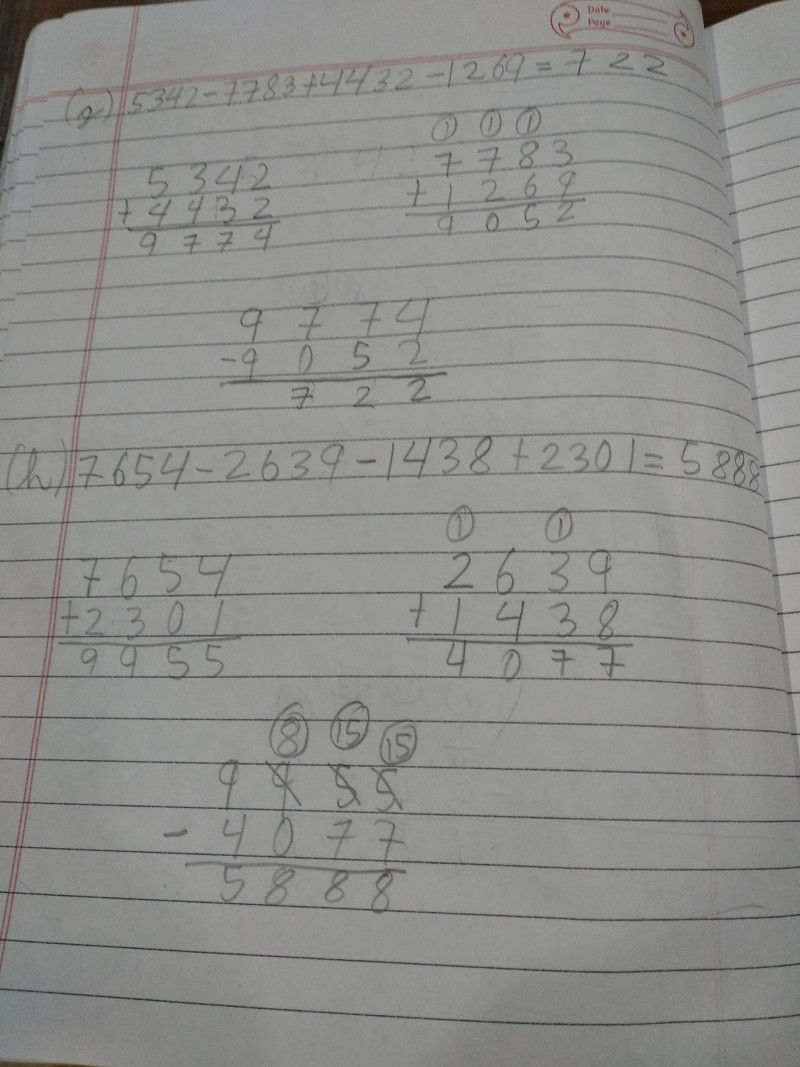 Date
Page
(g) 5342-7783+4432-1269=722
① ① ①
5342 7783
+4432 +1269
9774 9052
9774
-9052
722
(h) 7654-2639-1438+2301=5888
① ①
7654 2639
+2301 +1438
9955 4077
⑧ ⑮ ⑮
9955
-4077
5888